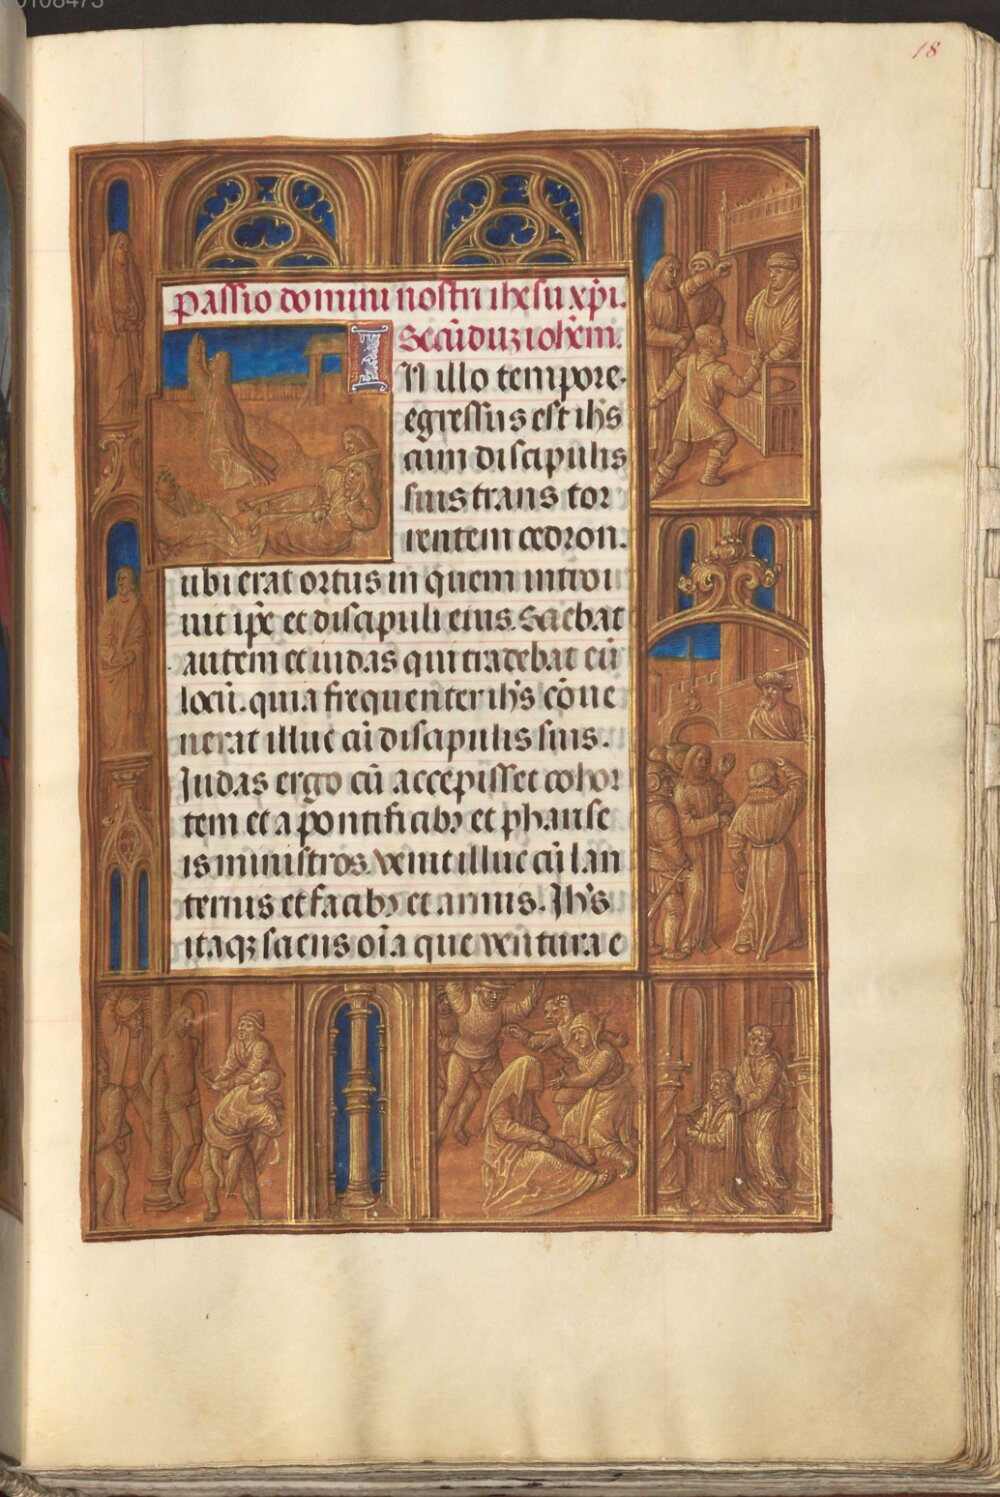 00108473
18
Passio domini nostri ihesu xp̄i.
Secūduz iohēm.
IN illo tempore.
egressus est ih̄s
cum discipulis
suis trans tor
rentem cedron.
ubi erat ortus in quem introi
uit ip̄e et discipuli eius. Sciebat
autem et iudas qui tradebat eū
locū. quia frequenter ih̄s cōue
nerat illuc cū discipulis suis.
Iudas ergo cū accepisset cohor
tem et a pontificibꝫ et pharise
is ministros. venit illuc cū lan
ternis et facibꝫ et armis. Ih̄s
itaqꝫ sciens oīa que ventura e